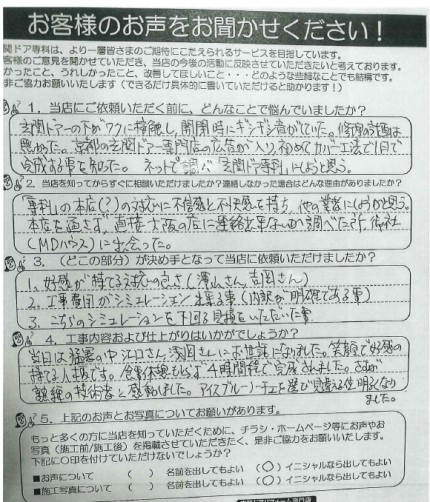 お客様のお声をお聞かせください!
関ドア専科は、より一層皆さまのご期待にこたえられるサービスを目指しています。
客様のご意見を聞かせていただき、当店の今後の活動に反映させていただきたいと考えております。
かったこと、うれしかったこと、改善してほしいこと・・・どのような些細なことでも結構です。
非ご協力お願いいたします(できるだけ具体的に書いていただけると助かります!)
1.当店にご依頼いただく前に、どんなことで悩んでいましたか?
玄関ドアーの下がワクに接触し、開閉時にギシギシ音がでていた。
京都の玄関ドアー専門店の広告が入り、初めてカバー工法で1日で
完成する事を知った。ネットで調べ「玄関ドア専科」にしようと思う。
2.当店を知ってからすぐに相談いただけましたか?連絡しなかった場合はどんな理由がありましたか?
「専科」の本店(?)の対応に不信感と不快感を持ち、他の業者にしようかと思う。
本店を通さず、直接大阪の店に連絡出来ないか調べた所、御社
(MDハウス)に出会った。
3.(どこの部分)が決め手となって当店に依頼いただけましたか?
1、好感が持てる対応の良さ(澤山さん、吉岡さん)
2、工事費用がシミュレーション出来る事(内訳が明確である事)
3、こちらのシミュレーションを下回る見積をいただいた事
4.工事内容および仕上がりはいかがでしょうか?
当日は猛暑の中江口さん、浅岡さんにお世話になりました。笑顔で好感の
持てる人柄です。食事休憩もとらず4時間程で完成されました。さすが
熟練の技術者と感動しました。アイスブルーチェを選び見違える位明るくなり
ました。
5.上記のお声とお写真についてお願いがあります。
もっと多くの方に当店を知っていただくために、チラシ・ホームページ等にお声やお
写真(施工前/施工後)を掲載させていただきたく、是非ご協力をお願いいたします。
下記に〇印を付けていただけないでしょうか?
■お声について ( ) 名前を出してもよい (〇) イニシャルなら出してもよい
■施工写真について ( ) 名前を出してもよい (〇) イニシャルなら出してもよい